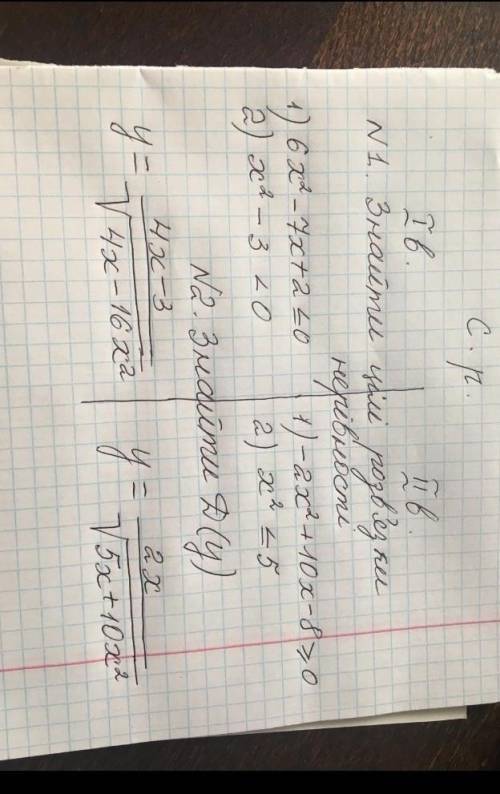 С. р.
I в. II в.
N1. Знайти цілі розв'язки
нерівності
1) 6x² - 7x + 2 ≤ 0 1) -2x² + 10x - 8 ≥ 0
2) x² - 3 < 0 2) x² ≤ 5
N2. Знайти D(y)
y = (4x-3)/√(4x - 16x²) y = 2x/√(5x + 10x²)